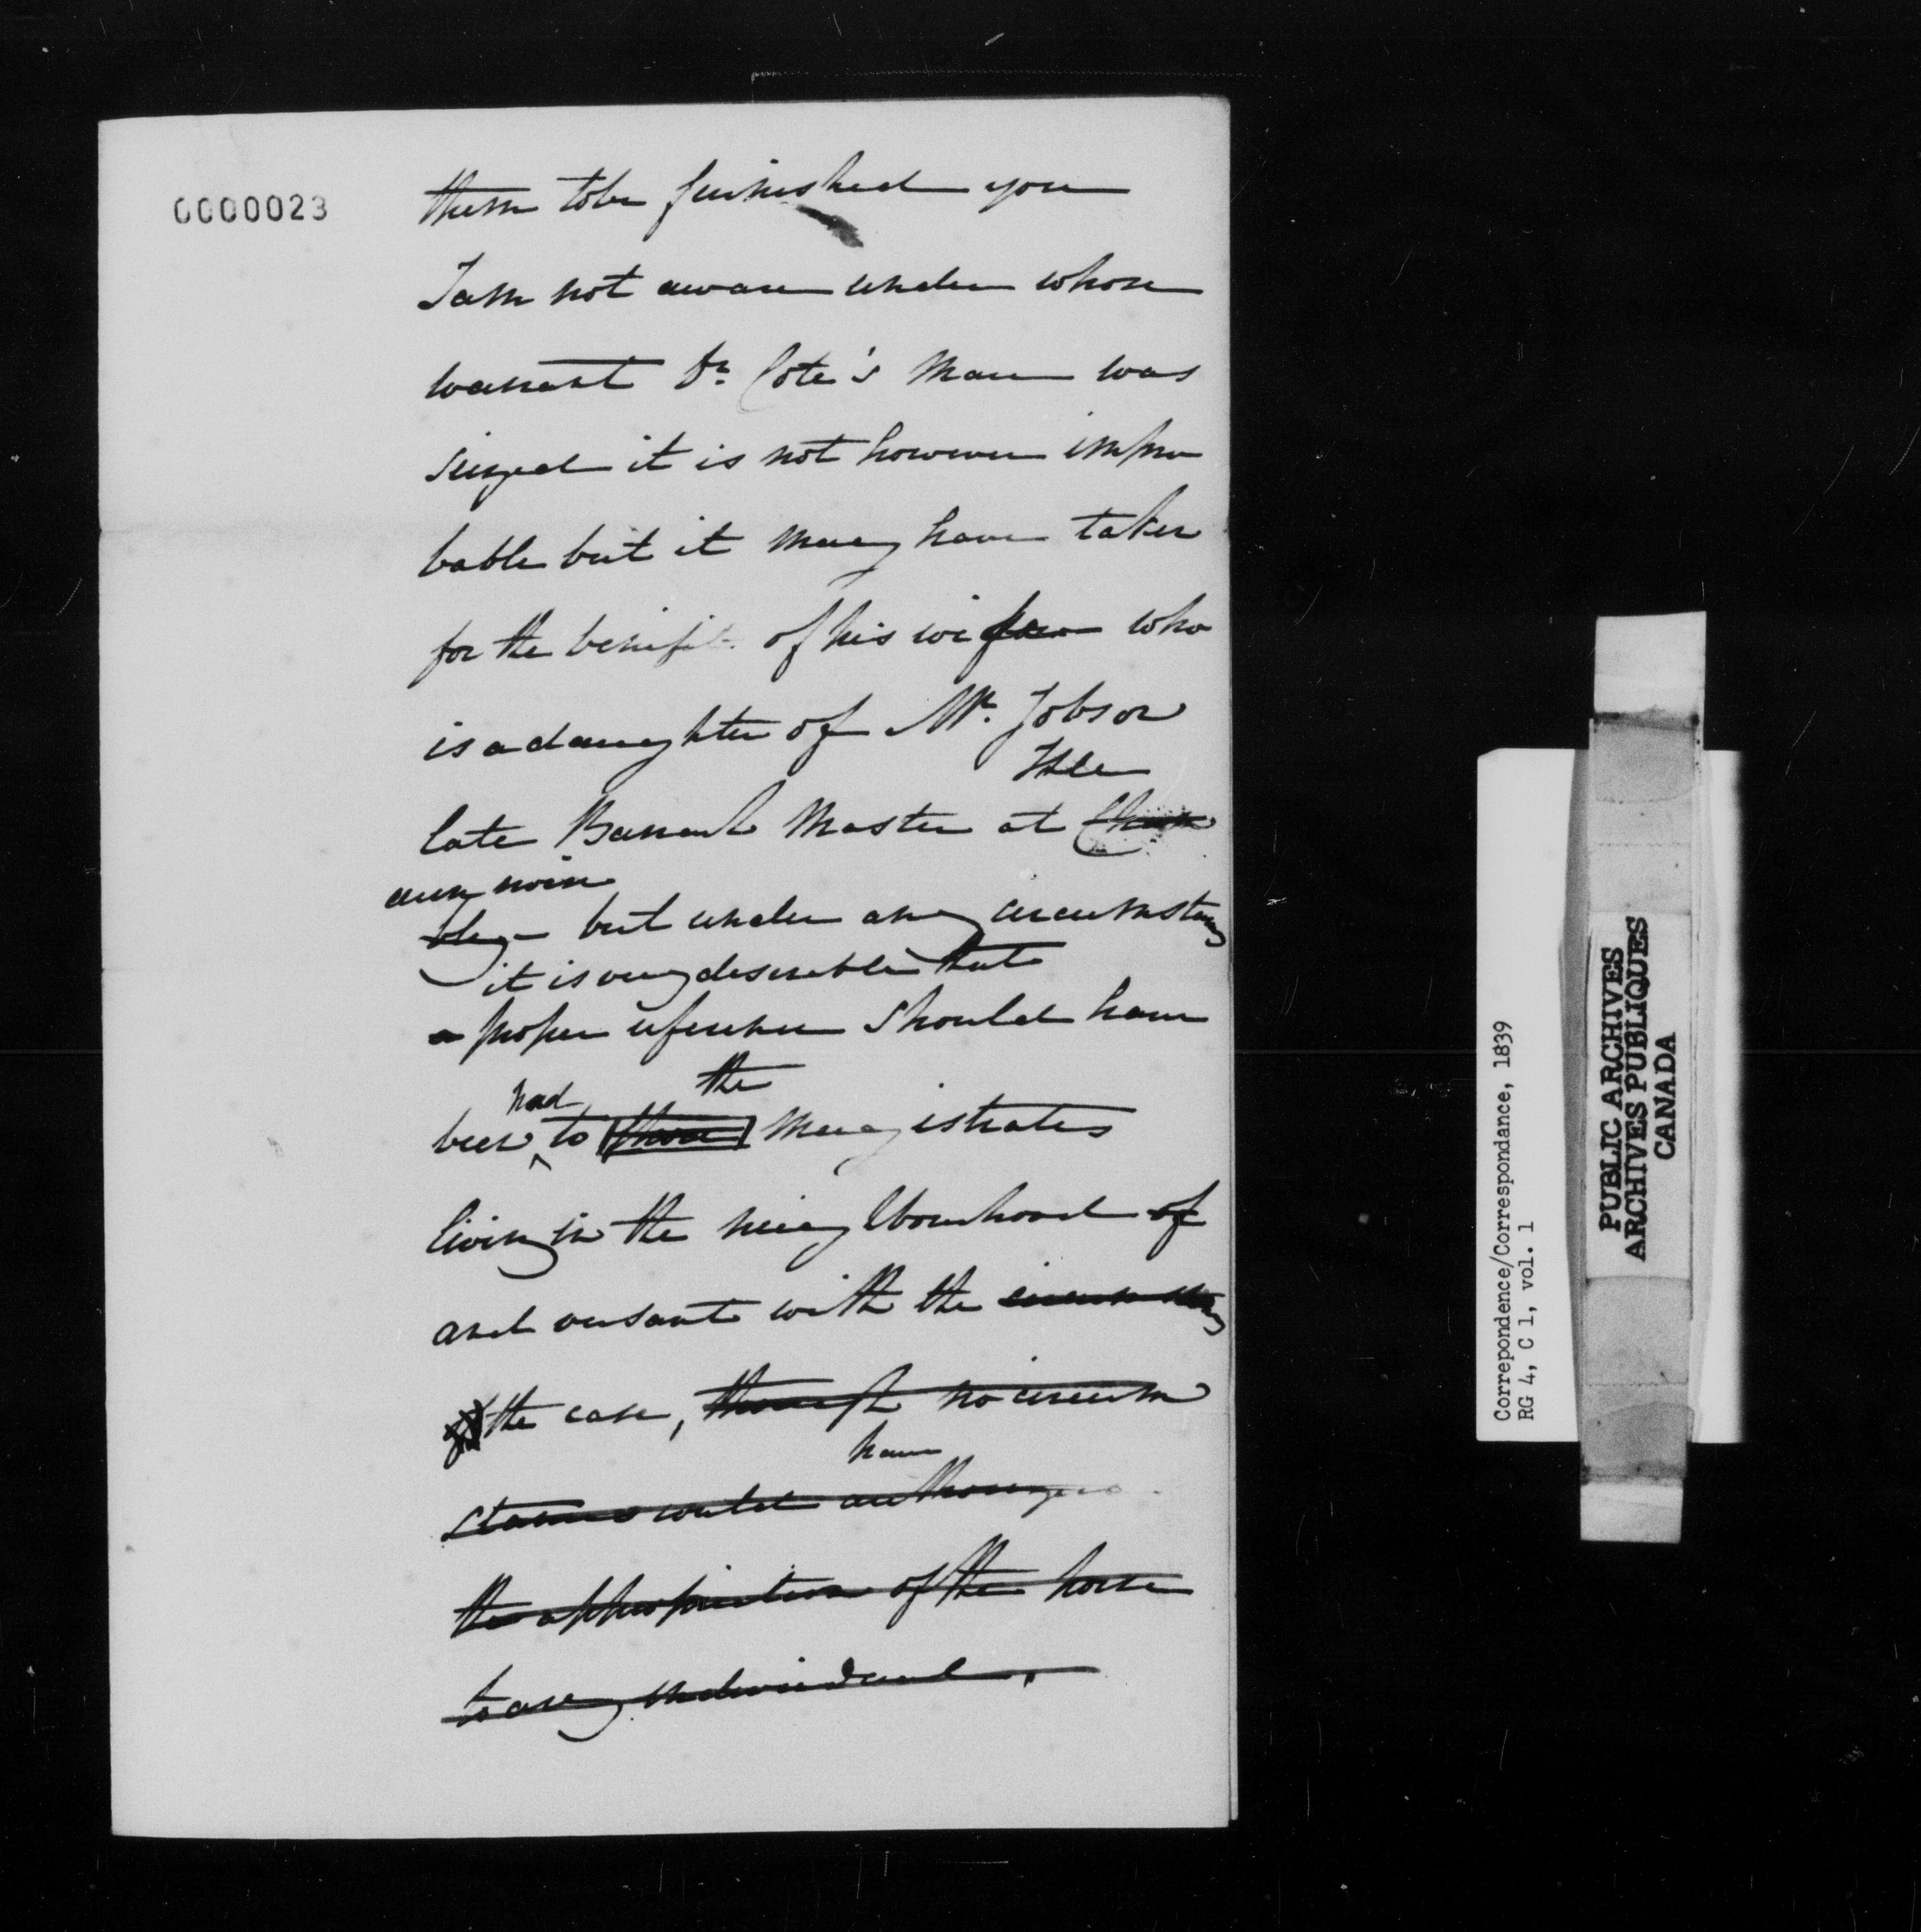 0000023
them to be furnished you
I am not aware under whose
warrant Dr. Cote's Mare was
seized it is not however impro
bable but it may have taken
for the benefit of his wife who
is a daughter of Mr. Jobson
Isle
late Barrack Master at Cham
aux noix
bly but under any circumstances
it is very desirable that
a proper reference should have
had the
been to those Magistrates
living in the neighbourhood of
and versant with the circumstances
of the case, though no circum
have
stances would authorize
the appropriation of the horse
to any individual.
Correpondence/Correspondance, 1839
RG 4, C 1, vol. 1
PUBLIC ARCHIVES
ARCHIVES PUBLIQUES
CANADA